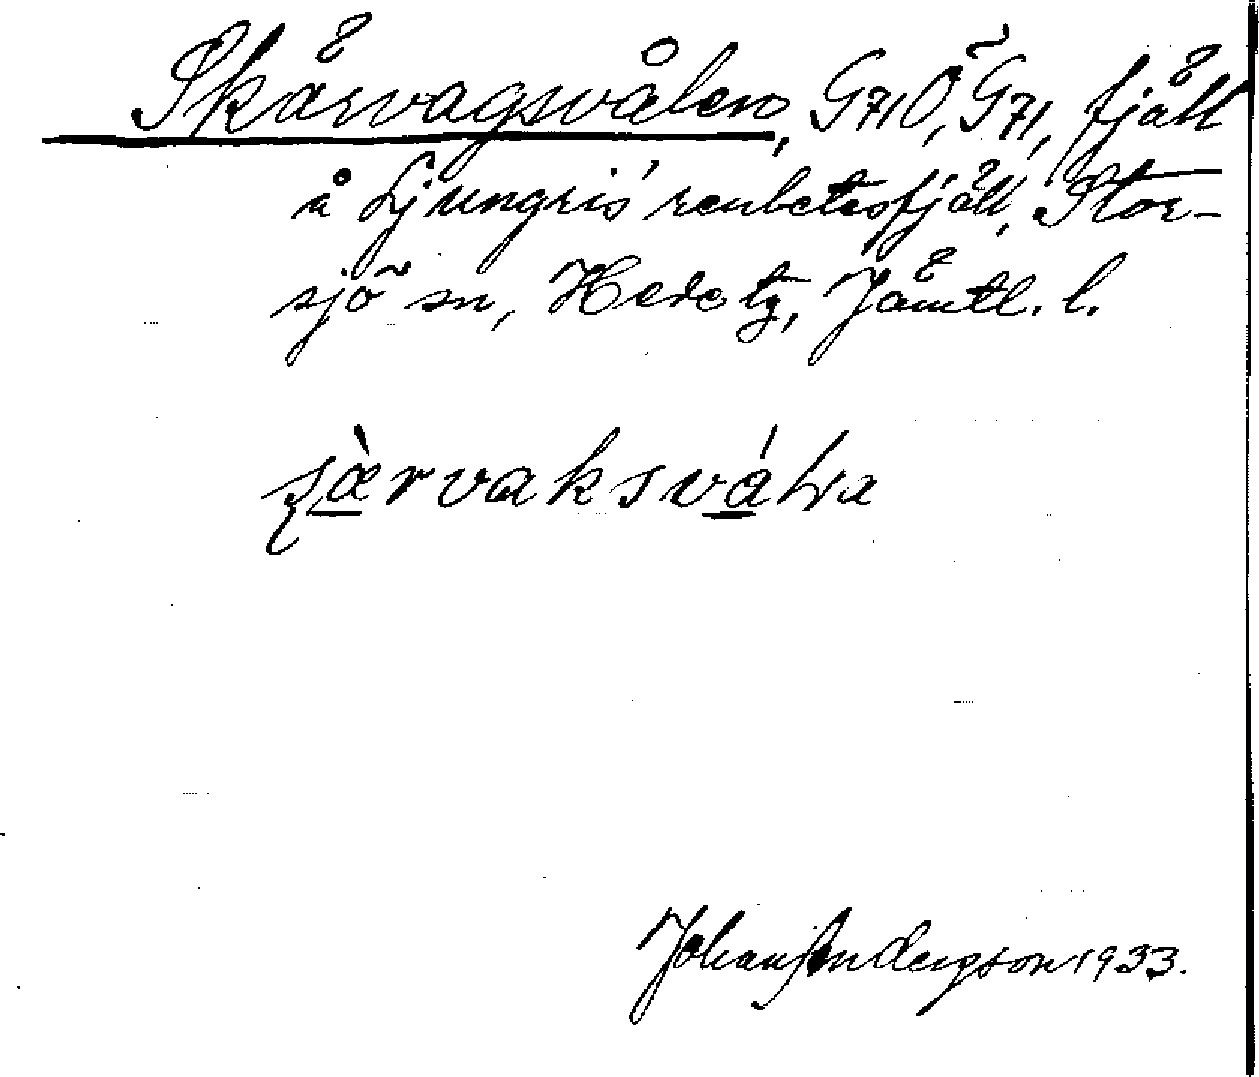 Skärvagsvålen, G71Ö, G71, fjäll
å Ljungris' renbetesfjäll, Stor-
sjö sn, Hede tg, Jämtl. l.
Johan Anderson 1933.